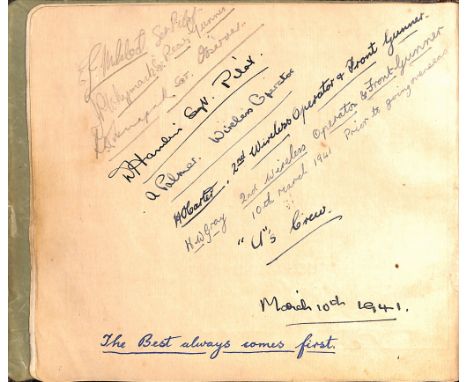 Sgt Pilot.
Rear Gunner
Sgt. Observer.
D Hamlin Sgt. Pilot.
A Palmer. Wireless Operator
2nd Wireless Operator & Front Gunner.
H W Gray 2nd Wireless Operator & Front Gunner
10th March 1941 Prior to going overseas
"U"s Crew.
March 10th 1941.
The Best always comes first.